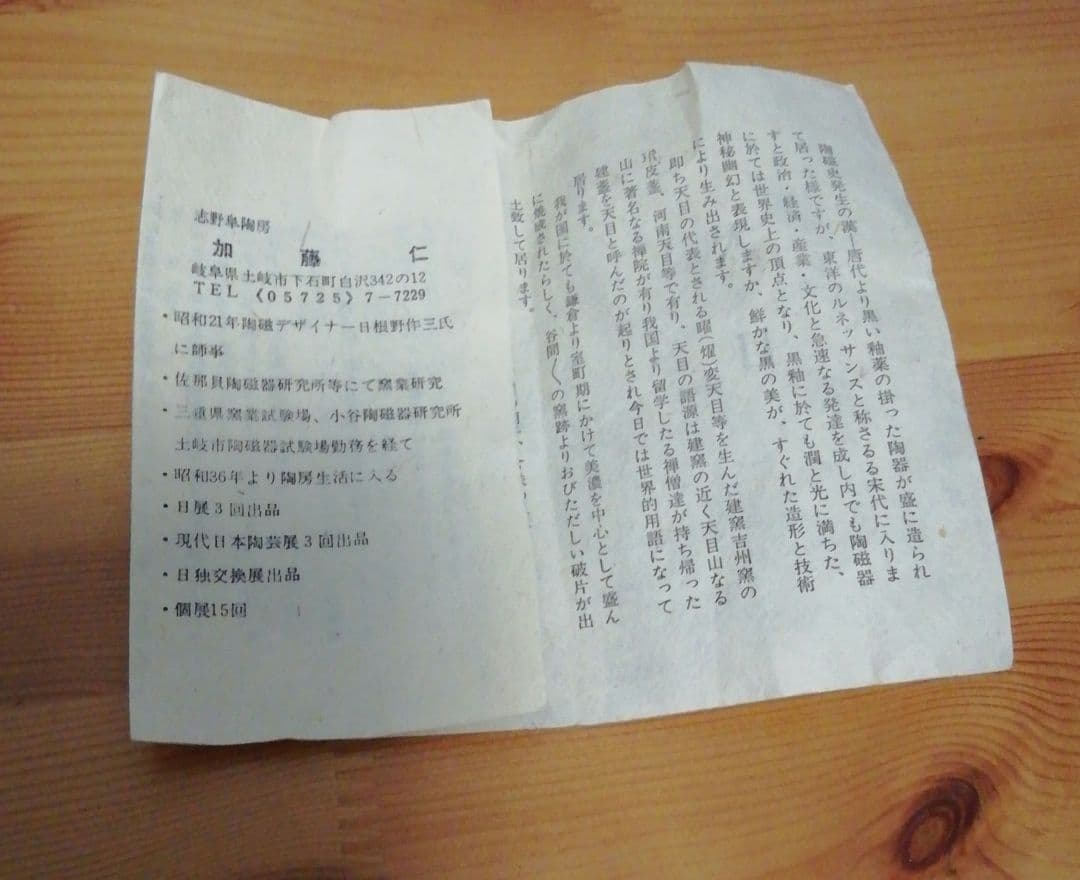 陶磁史発生の漢―唐代より黒い釉薬の掛った陶器が盛に造られ
て居った様ですが、東洋のルネッサンスと称さるる宋代に入りま
すと政治・経済・産業・文化と急速なる発達を成し内でも陶磁器
に於ては世界史上の頂点となり、黒釉に於ても潤と光に満ちた、
神秘幽幻と表現しますか、鮮かな黒の美が、すぐれた造形と技術
により生み出されます。
即ち天目の代表とされる曜(燿)変天目等を生んだ建窯吉州窯の
皮盞、河南天目等で有り、天目の語源は建窯の近く天目山なる
山に著名なる禅院が有り我国より留学したる禅僧達が持ち帰った
建盞を天目と呼んだのが起りとされ今日では世界的用語になって
居ります。
我が国に於ても鎌倉より室町期にかけて美濃を中心として盛ん
に焼成されたらしく、谷間〱の窯跡よりおびただしい破片が出
土致して居ります。
志野阜陶房
加藤 仁
岐阜県土岐市下石町白沢342の12
TEL (05725)7-7229
・昭和21年陶磁デザイナー日根野作三氏
に師事
・佐那具陶磁器研究所等にて窯業研究
・三重県窯業試験場、小谷陶磁器研究所
土岐市陶磁器試験場勤務を経て
・昭和36年より陶房生活に入る
・日展3回出品
・現代日本陶芸展3回出品
・日独交換展出品
・個展15回